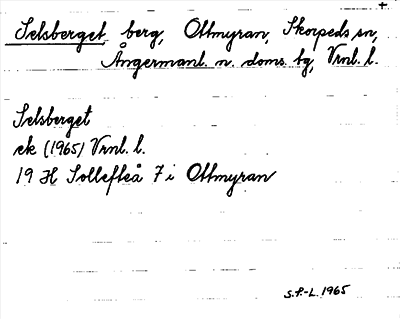 +
Selsberget, berg, Ottmyran, Skorpeds sn,
Ångermanl. n. doms. bg, Vrnl. l.
Selsberget
ek (1965) Vrnl. l.
19 H Sollefteå 7 i Ottmyran
S.P.-L. 1965